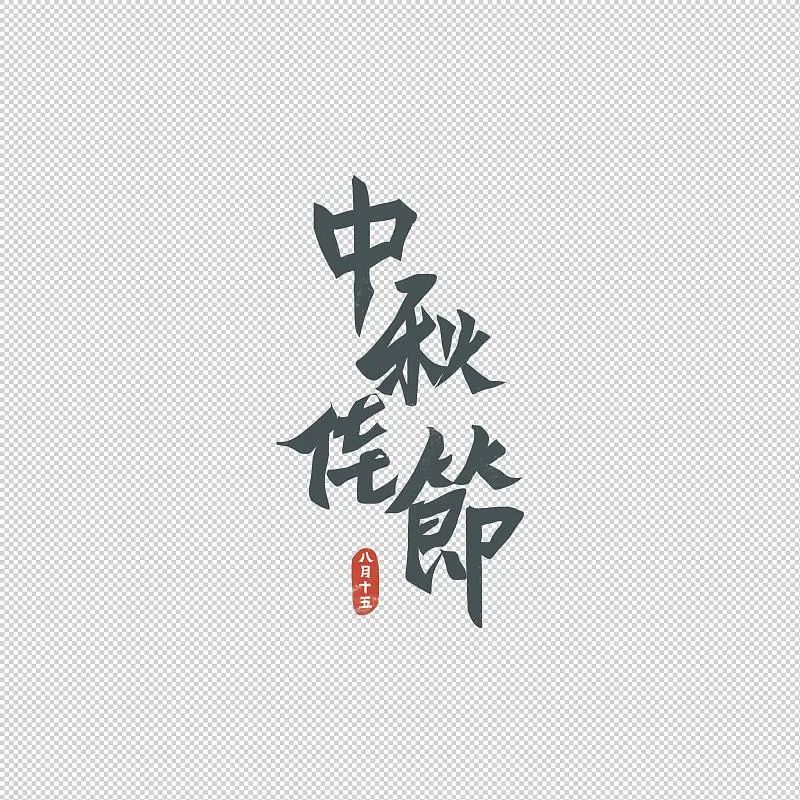 中秋佳節
八月十五